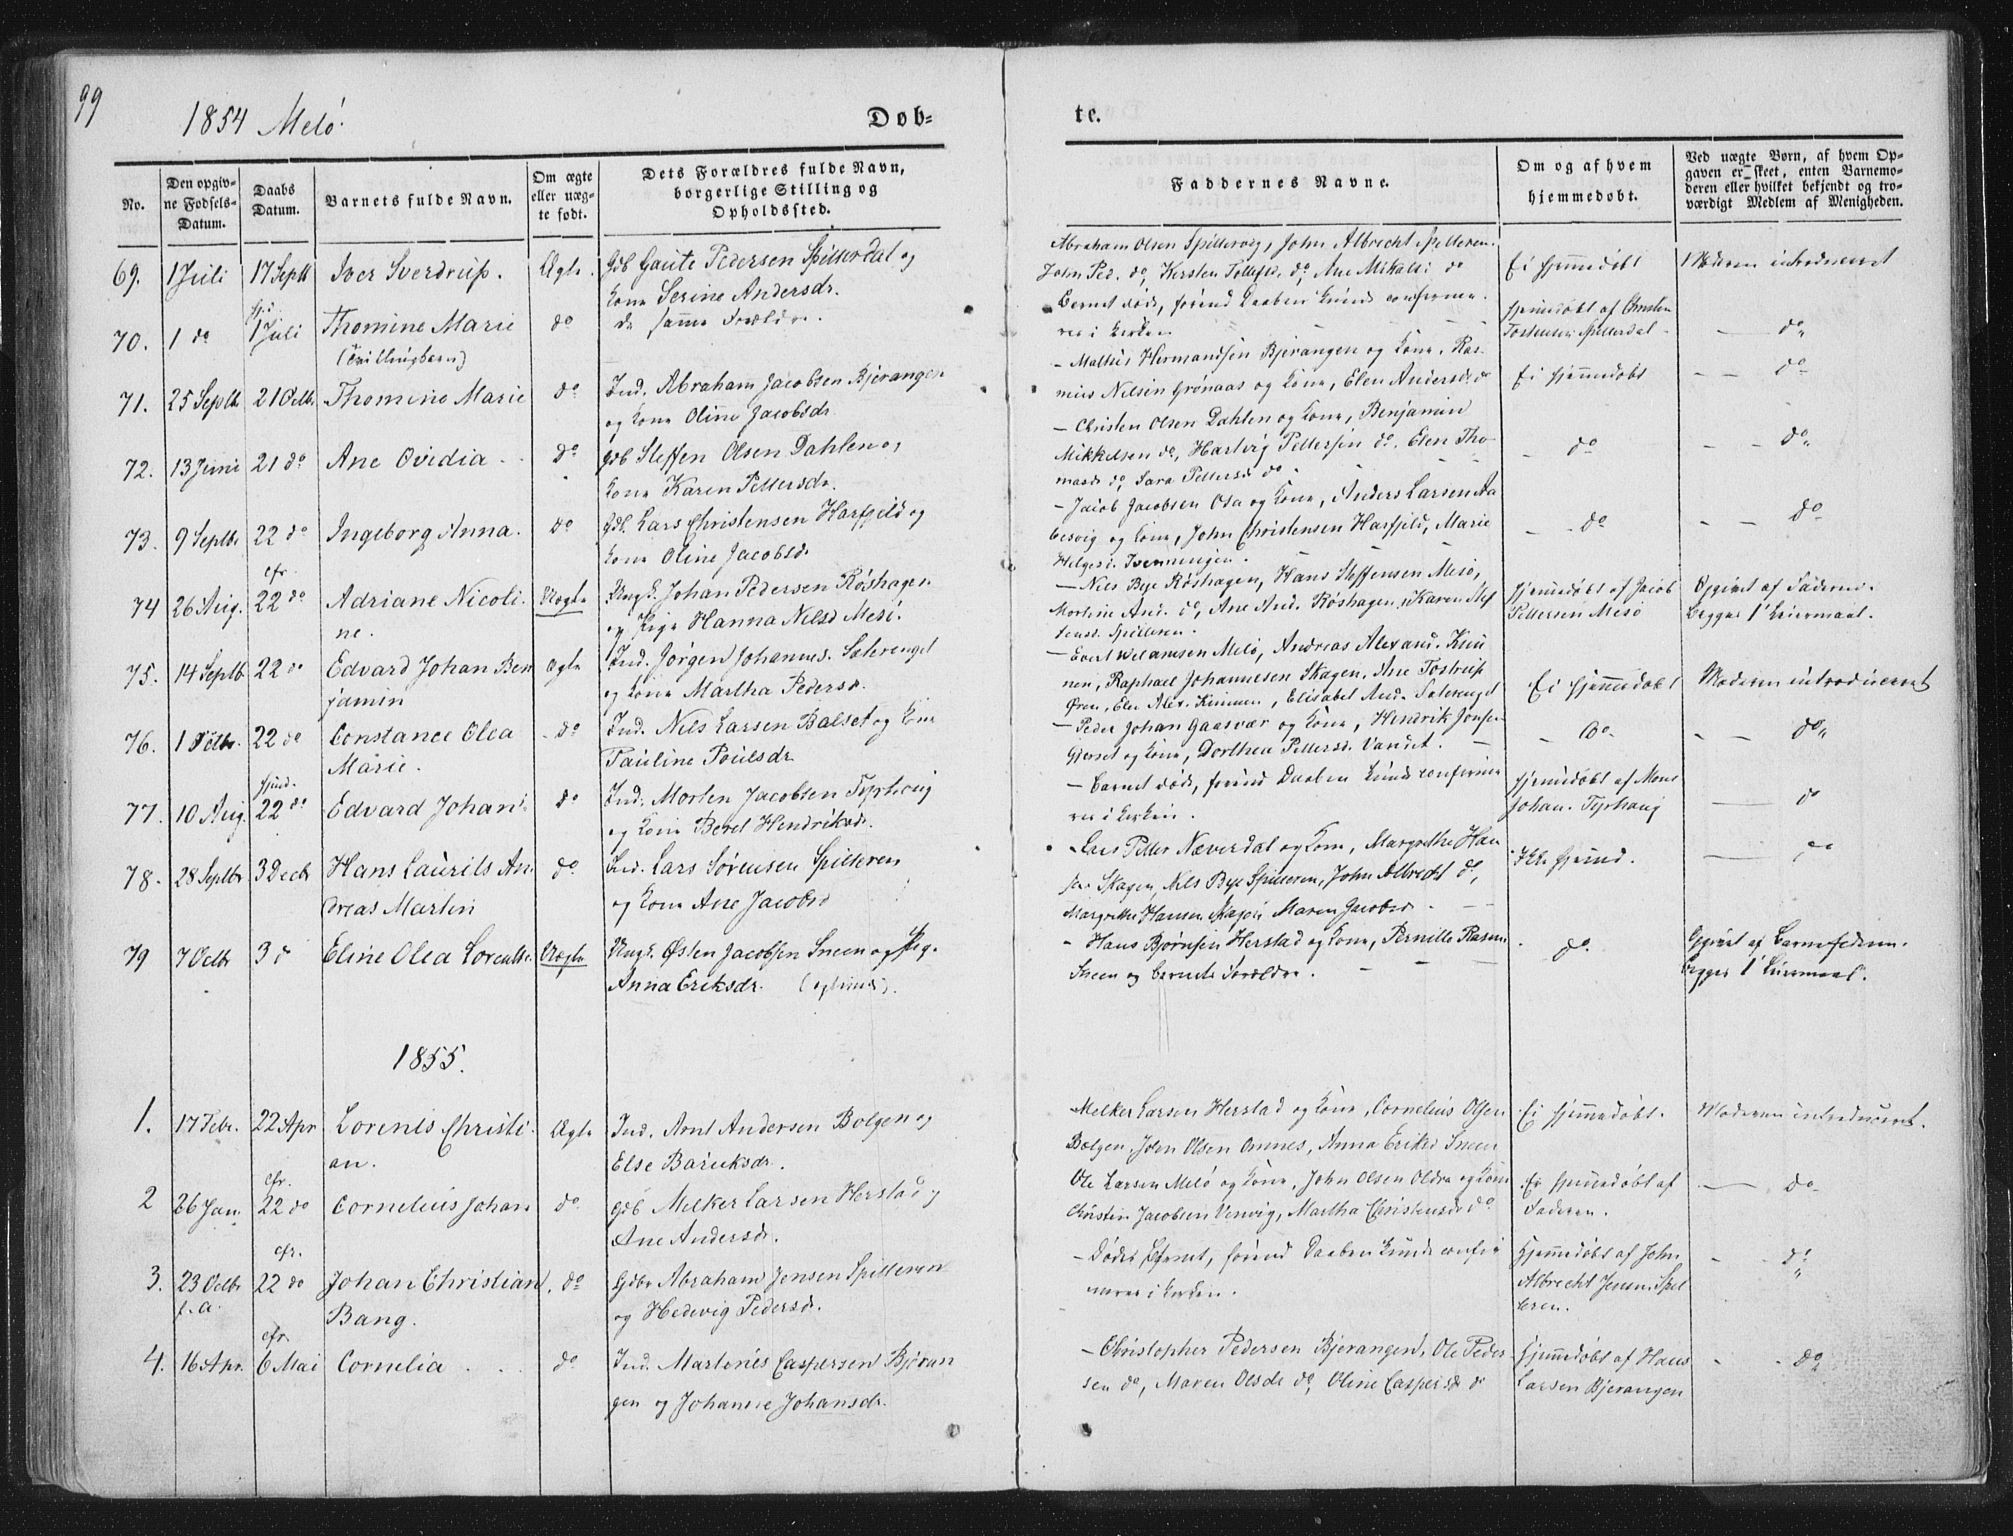 99
1854 Melö.
Døb-
te.
No.
Den opgiv-
ne Fødsels-
Datum.
Daabs
Datum.
Barnets fulde Navn.
Om ægte
eller uæg-
te født.
Dets Forældres fulde Navn,
borgerlige Stilling og
Opholdssted.
Faddernes Navne.
Om og af hvem
hjemmedøbt.
Ved uægte Børn, af hvem Op-
gaven er skeet, enten Barnemo-
deren eller hvilket bekjendt og tro-
værdigt Medlem af Menigheden.
69. 1 Juli 17 Septb Iver Sverdrup. Ægte. Gdb Gaute Pedersen Spilderdal og
Kone Serine Andersdr.
Abraham Olsen Spildervig, John Albrecht Spilderen.
John Ped. do, Kersten Tollefsd. do, Ane Mikalsd do
Ei hjemmedøbt
Moderen introduceret
70. 1 do 1 Juli Thomine Marie do de samme Forældre.
(Tvillingbarn)
Barnet døde, forend Daaben kunde confirme-
res i Kirken
hjemmedøbt af Christen
Tostensen Spilderdal
do
71. 25 Septb 21 Octb. Thomine Marie do Ind. Abraham Jacobsen Bjerangen
og Kone Oline Jacobsdr
- Mathis Hermandsen Bjerangen og Kone, Ras-
mus Nilsen Grønaas og Kone, Elen Andersd. do
Ei hjemmedøbt
do
72. 13 Juni 21 do Ane Ovidia do Gdb Steffen Olsen Dahlen og
Kone Karen Pettersdr.
- Christen Olsen Dahlen og Kone, Benjamin
Mikkelsen do, Hartvig Pettersen do, Elen Tho-
masd do, Sara Pettersd do.
do
do
73. 9 Septbr 22 do Ingeborg Anna. do Gdb. Lars Christensen Harfjeld og
Kone Oline Jacobsdr
- Jacob Jacobsen Osa og Kone, Anders Larsen Aa
besvig og Kone, John Christensen Harfjeld, Marie
Helgesd. Svenningen.
do
do
74 26 Aug. cfr. 22 do Adriane Nicoli-
ne.
Uægte Ungk. Johan Pedersen Røshagen
og Pige Hanna Nilsd Mesö.
- Nils Bye Røshagen, Hans Steffensen Mesö,
Martine And. do, Ane And. Røshagen, Karen Stef
fensd. Spilderen.
hjemmedøbt af Jacob
Pettersen Mesö
Opgivet af Faderen.
Begges 1ste Leiermaal.
75. 14 Septb 22 do Edvard Johan Ben
jamin
Ægte Ind. Jørgen Johannes. Säterenget
og Kone Martha Pedersdr.
- Evert Welamsen Melö, Andreas Alexand. Kun
nen, Raphael Johannesen Skagen, Ane Tostrup
Øren, Elen Alex. Kunnen, Elisabet And. Säterenget
Ei hjemmedøbt
Moderen introduceret
76. 1 Octbr. 22 do Constance Olea
Marie.
do Ind. Nils Larsen Balset og Kone
Pauline Poulsdr
- Peder Johan Gaasvær og Kone, Hendrik Jonsen
og Kone, Dorthea Pettersd. Vandet.
do
do
77. 10 Aug. hjmd. 22 do Edvard Johan do Ind. Morten Jacobsen Tephoug
og Kone Beret Hendriksdr.
- Barnet død, forend Daaben kunde confirme
res i Kirken.
hjemmedøbt af Mons
Johan. Tephaug
do
78. 28 Septbr 3 Decb Hans Laurits An
dreas Martin
do Ind. Lars Sørensen Spilderen
og Kone Ane Jacobsd
- Lars Petter Næverdal og Kone, Margrethe Han
sen Skagen, Nils Bye Spilderen, John Albrecht do,
Margrethe Hansen Skagen, Maren Jacobsd
Ikke hjemd.
do
79 7 Octbr 3 d Eline Olea Lorentse. Uægte Ungk. Østen Jacobsen Sneen og Pig.
Anna Eriksdr.
- Hans Bjørnsen Herstad og Kone, Pernille Rasm
Sneen og Barnets Forældre.
do
Opgivet af Barnefaderen.
Begges 1ste Leiermaal.
1855.
1. 17 Febr. 22 Apr Lorents Christi-
an.
Ægte Ind. Arnt Andersen Bolgen og
Else Baruksdr.
Melker Larsen Herstad og Kone, Cornelius Olsen
Bolgen, John Olsen Omnes, Anna Eriksd Sneen
Ei hjemmedøbt.
Moderen introduceret.
2 26 Jan. cfr. 22 do Cornelius Johan do Gdb Melker Larsen Herstad og
Ane Andersdr.
Ole Larsen Melö og Kone, John Olsen Oldra og Kone
Christen Jacobsen Venvig, Martha Christensd. do
Er hjemmedøbt af
Faderen.
do
3. 23 Octbr f.a. cfr. 22 do Johan Christian
Bang.
do Gdbr Abraham Jensen Spilderen
og Hedevig Pedersdr.
- Døde Barnet, forend Daaben kunde confir
meres i Kirken.
Hjemmedøbt af John
Albrecht Jensen Spil
deren.
do
4. 16 Apr. cfr. 6 Mai Cornelia do Ind. Martenes Caspersen Bjeran
gen og Johanne Johansdr.
- Christopher Pedersen Bjerangen, Ole Peder-
sen do, Maren Olsdr do, Oline Caspersd do
Hjemmedøbt af Hans
Larsen Bjerangen
do